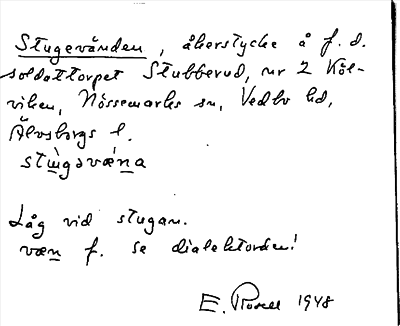 Stugevänden, åkerstycke å f.d.
soldattorpet Stubberud, nr 2 Köl-
viken, Nössemarks sn, Vedbo hd,
Älvsborgs l.
stùgəvæ̀na
Låg vid stugan.
væn f. se dialektorden!
E. Rosell 1948